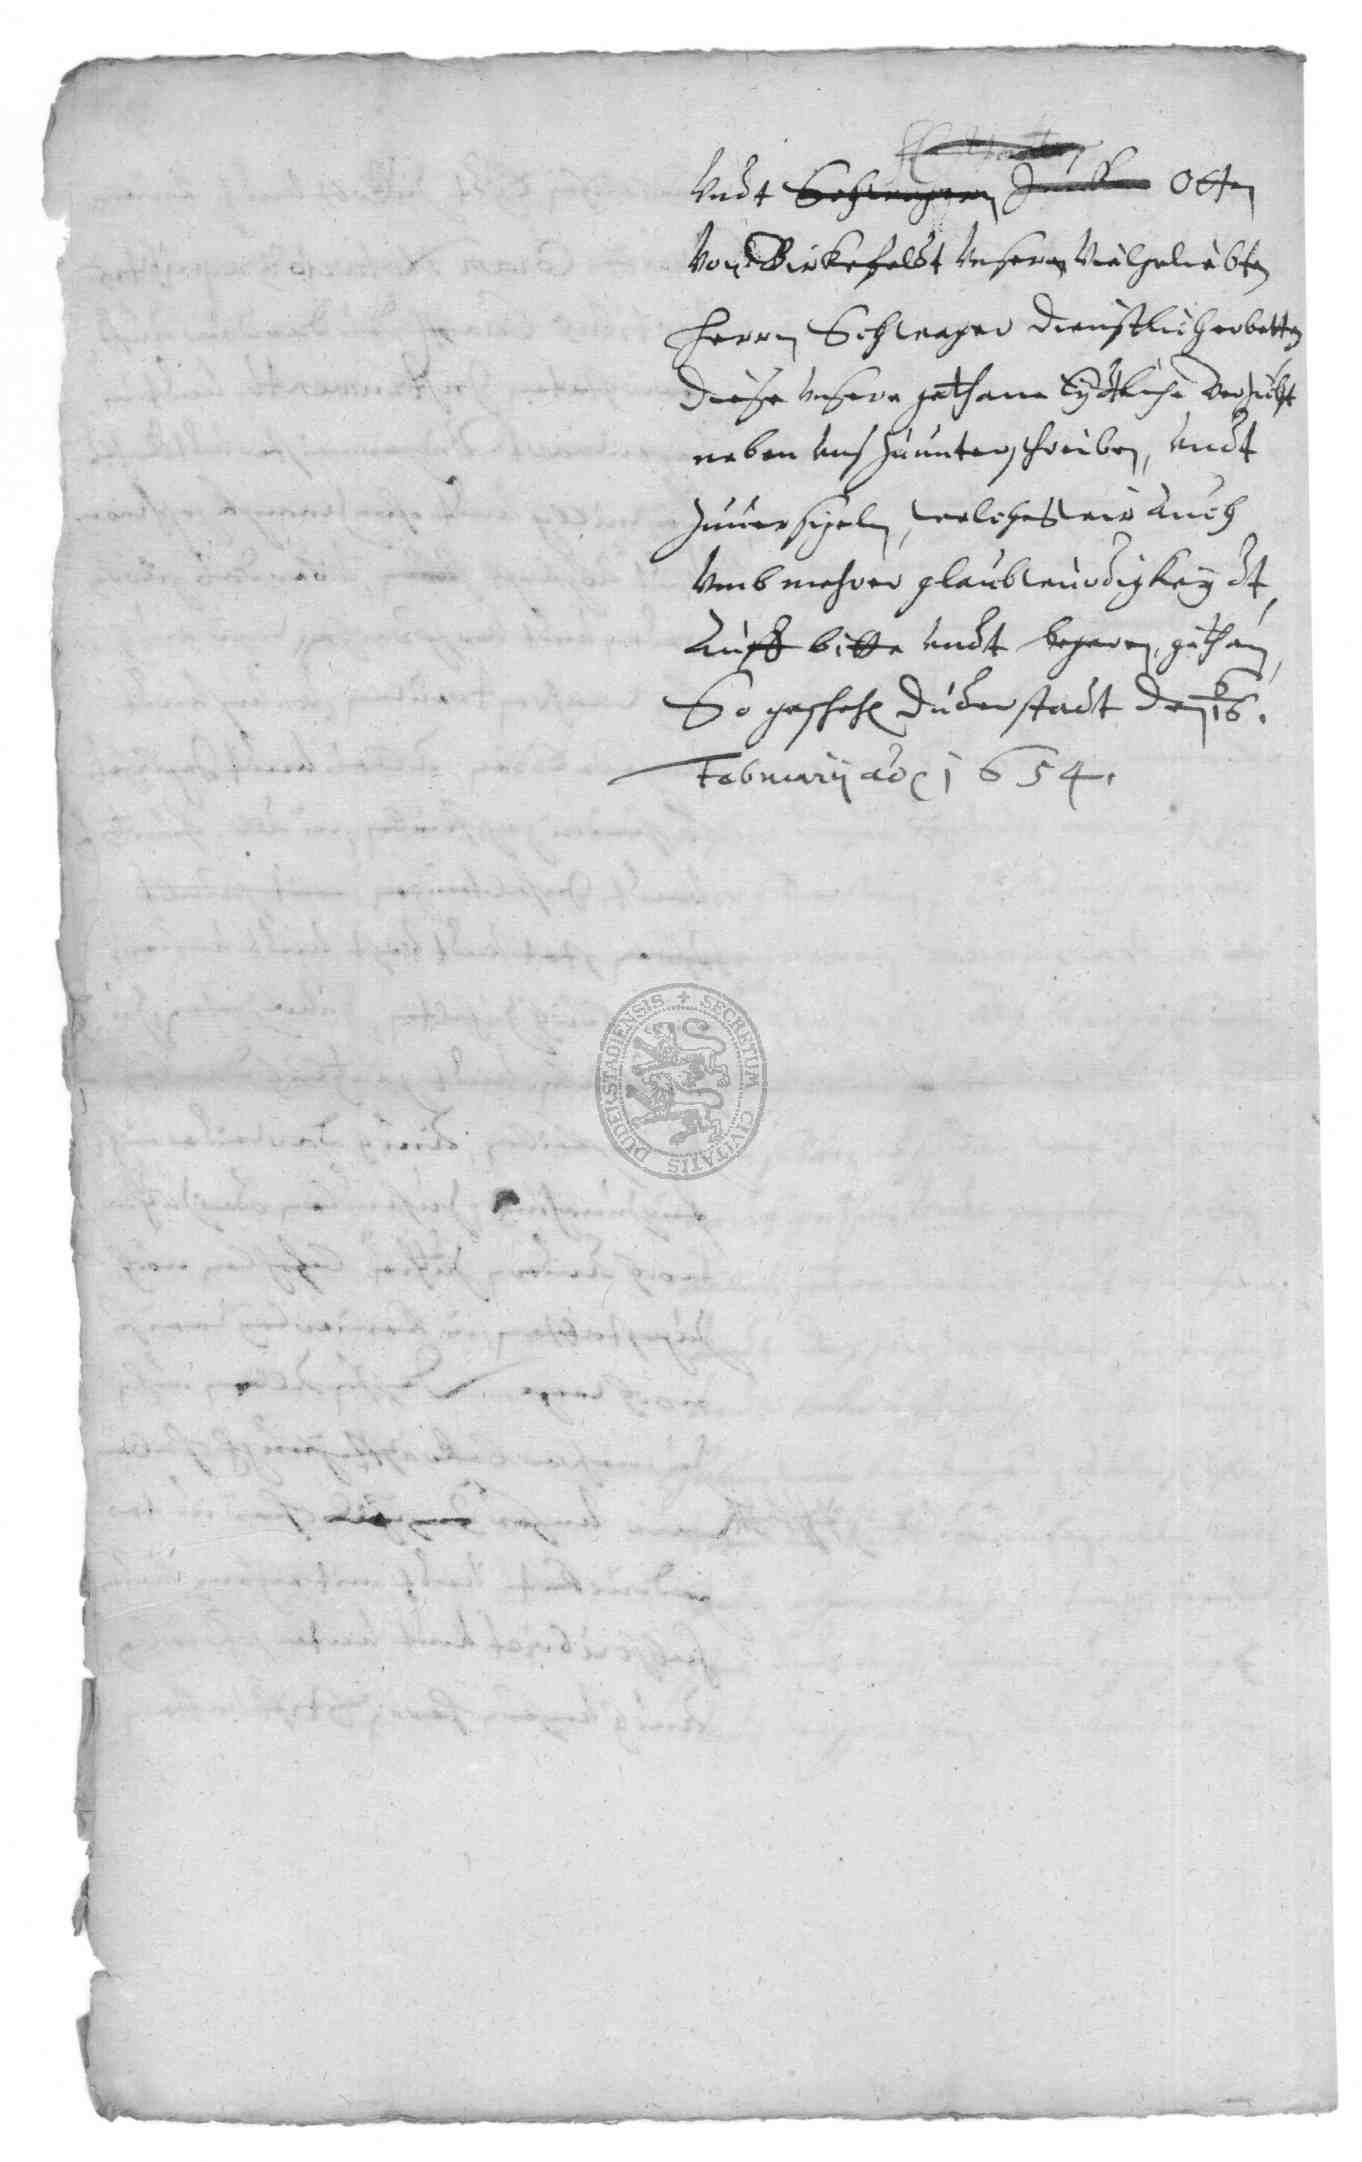 Vndt Schwagern Junkern Otten
Von Birkefeldt Vnsern Vielgeliebten
Herrn Schwager dienstlich erbetten
diese Vnsere gethane Eydtliche Verzicht
neben Vns zuunterschreiben, Vndt
zuuersigeln, welches wir auch
Vmb mehrer glaubwurdigkeydt,
auff bitte Vndt begeren, gethan,
So geschehen Duderstadt den 6/16.
Februarij ao 1654.
SECRETUM CIVITATIS DUDERSTADIENSIS